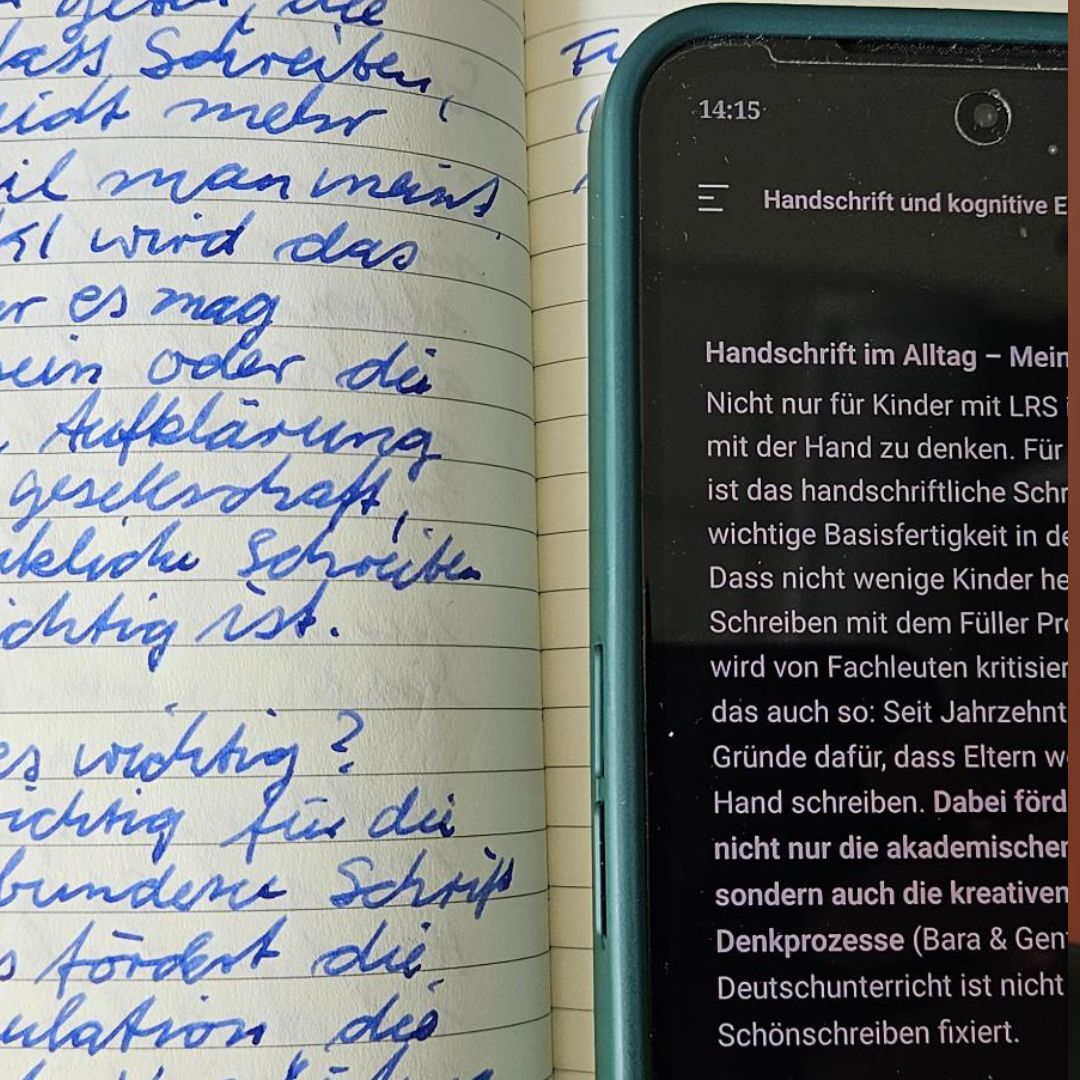 dass Schreiben,
nicht mehr
weil man meint,
KI wird das
es mag
sein oder die
Aufklärung
gesellschaft,
Schreiben
wichtig ist.
es wichtig?
wichtig für die
bundene Schrift
fördert die
ulation, die
14:15
Handschrift und kognitive E
Handschrift im Alltag – Mein
Nicht nur für Kinder mit LRS i
mit der Hand zu denken. Für
ist das handschriftliche Schr
wichtige Basisfertigkeit in de
Dass nicht wenige Kinder he
Schreiben mit dem Füller Pro
wird von Fachleuten kritisier
das auch so: Seit Jahrzehnt
Gründe dafür, dass Eltern we
Hand schreiben. Dabei förd
nicht nur die akademischen
sondern auch die kreativen
Denkprozesse (Bara & Gent
Deutschunterricht ist nicht
Schönschreiben fixiert.